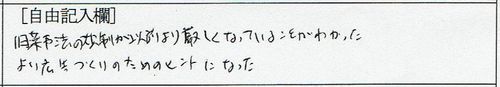 [自由記入欄]
旧薬事法の規制が以前より厳しくなっていることがわかった
より広告づくりのためのヒントになった